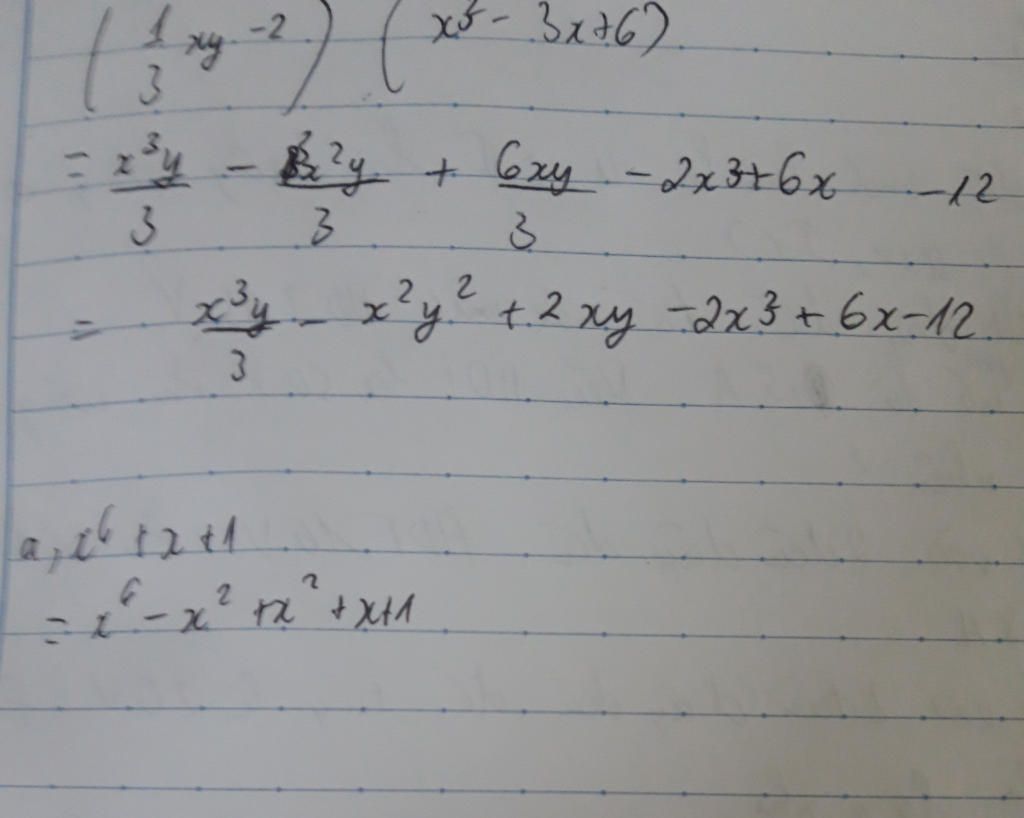 (1/3 xy - 2) (x² - 3x + 6)
= x³y/3 - 3x²y/3 + 6xy/3 - 2x3 + 6x - 12
= x³y/3 - x²y² + 2xy - 2x3 + 6x - 12
a, x⁶ + x + 1
= x⁶ - x² + x² + x + 1